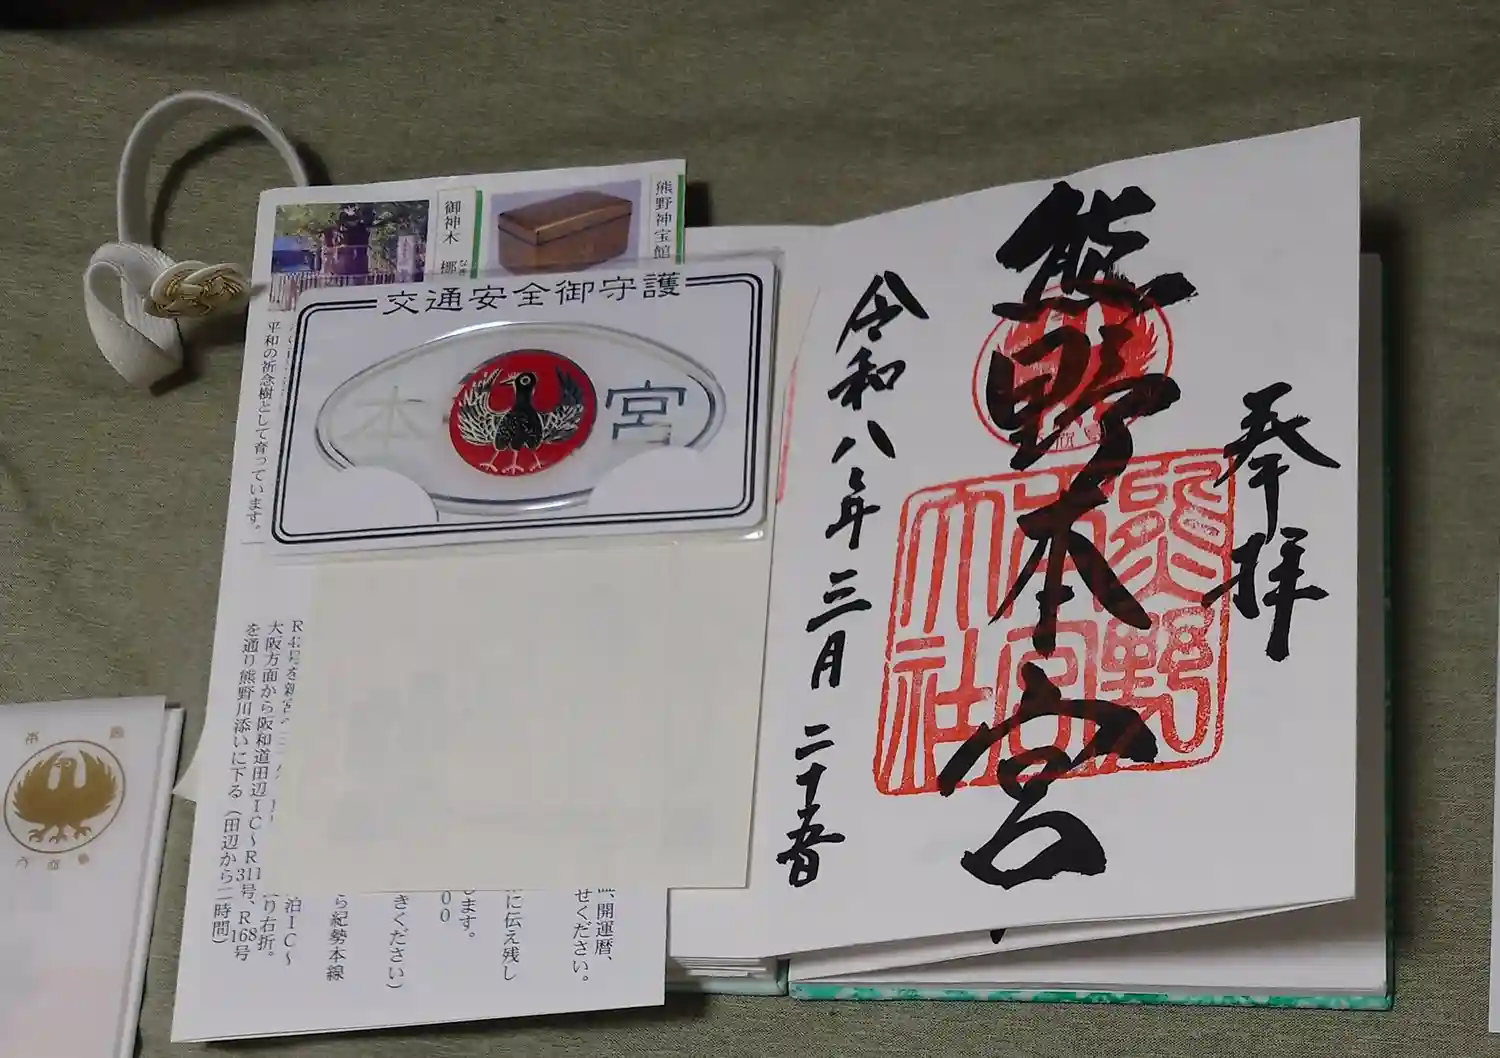 奉拝
熊野本宮
令和八年三月二十五日
熊野本宮大社
熊野神宝館
御神木 梛
なぎ
交通安全御守護
本宮
平和の祈念樹として育っています。
開運暦、
せください。
に伝え残し
します。
00
きください)
ら紀勢本線
泊IC〜
り右折。
大阪方面から阪和道田辺IC〜R
311号、R168号
を通り熊野川添いに下る(田辺から二時間)